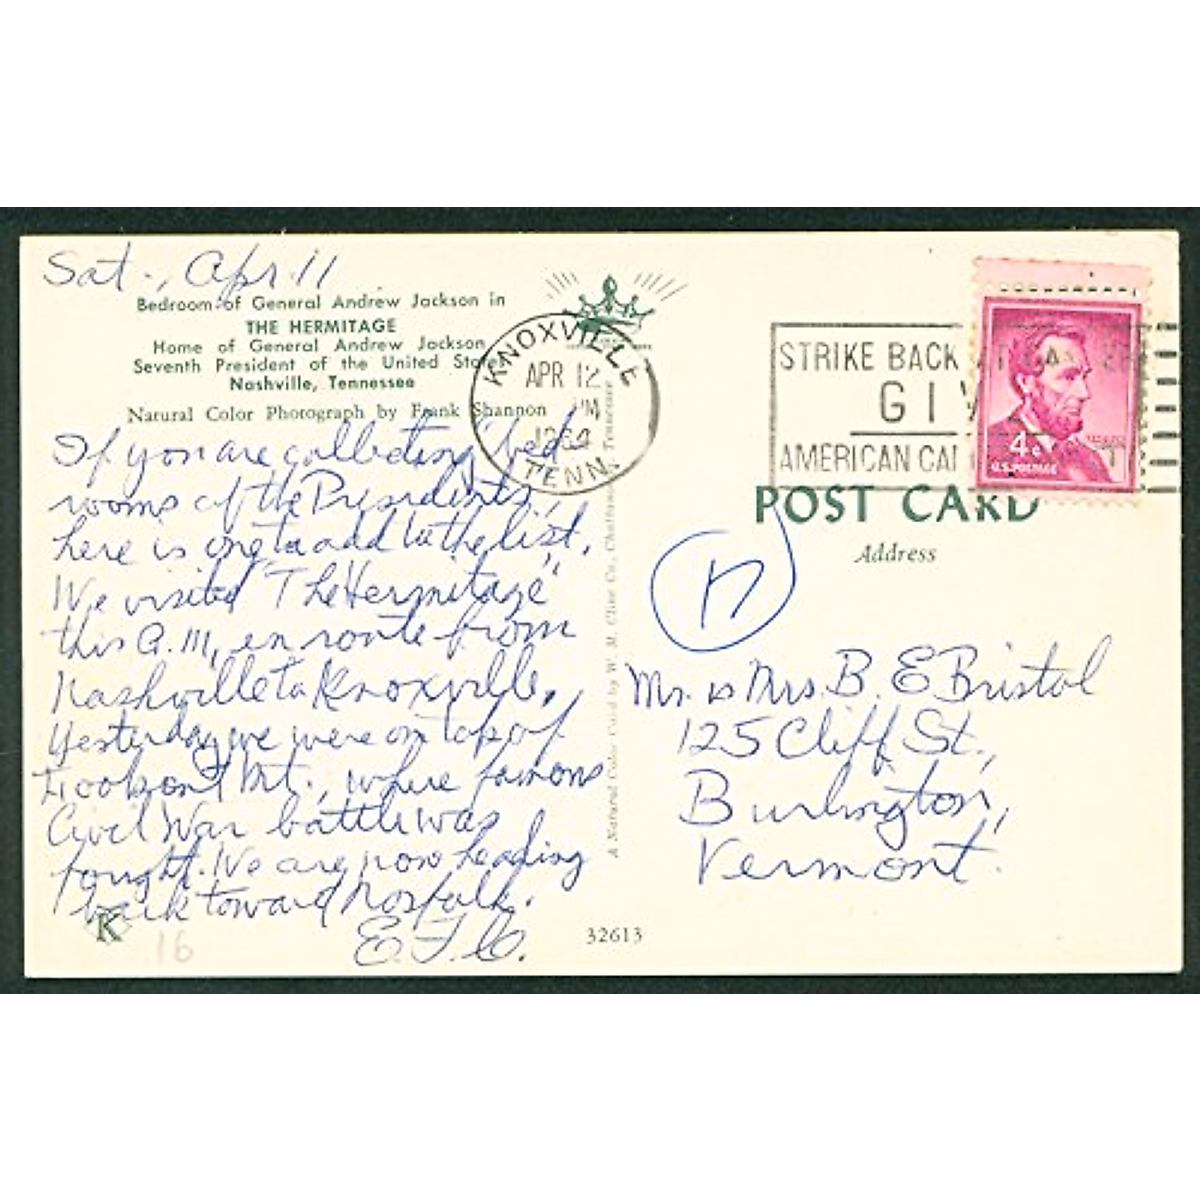 Sat., Apr. 11
Bedroom of General Andrew Jackson in
THE HERMITAGE
Home of General Andrew Jackson
Seventh President of the United States
Nashville, Tennessee
Natural Color Photograph by Frank Shannon
If you are collecting bed
rooms of the Presidents,
here is one to add to the list.
We visited "The Hermitage"
this A.M, en route from
Nashville to Knoxville.
Yesterday we were on top of
Lookout Mt., where famous
Civil War battle was
fought. We are now heading
back toward Norfolk.
E.F.C.
K
16
32613
KNOXVILLE
APR 12
PM
1964
TENN.
A Natural Color Card by W. M. Cline Co., Chattanooga, Tennessee
STRIKE BACK
GIV
AMERICAN CA
4¢
U.S. POSTAGE
POST CARD
Address
Mr. & Mrs. B. E Bristol
125 Cliff St.,
Burlington,
Vermont.